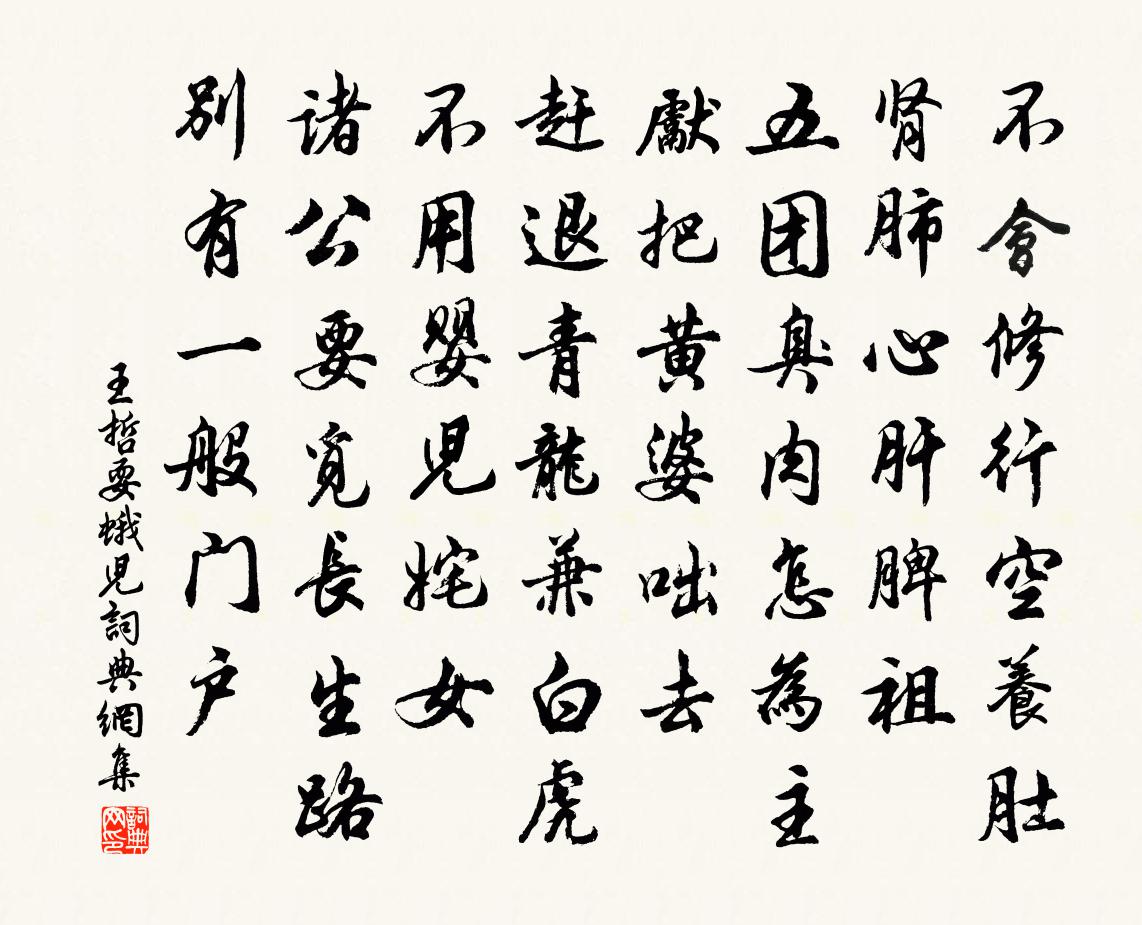 不會修行空養肚
肾肺心肝脾祖
五团臭肉怎為主
獻把黃婆咄去
赶退青龍兼白虎
不用婴児姹女
诸公要覓長生路
别有一般门户
王哲耍蛾児詞典網集
詞典网印